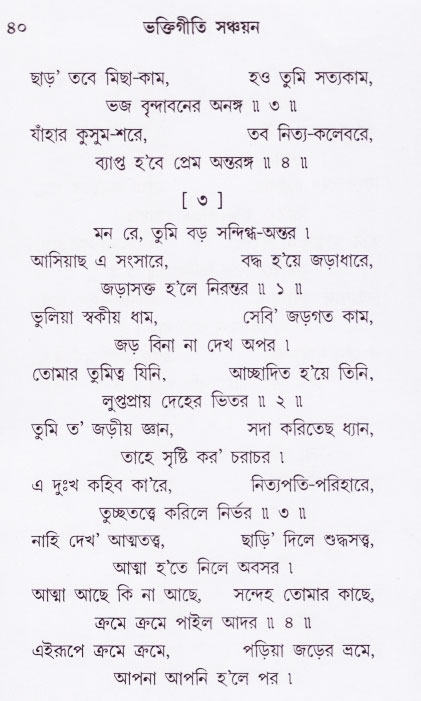 ৪০ ভক্তিগীতি সঞ্চয়ন
ছাড়' তবে মিছা-কাম, হও তুমি সত্যকাম,
ভজ বৃন্দাবনের অনঙ্গ ॥ ৩ ॥
যাঁহার কুসুম-শরে, তব নিত্য-কলেবরে,
ব্যাপ্ত হ'বে প্রেম অন্তরঙ্গ ॥ ৪ ॥
[ ৩ ]
মন রে, তুমি বড় সন্দিগ্ধ-অন্তর ।
আসিয়াছ এ সংসারে, বদ্ধ হ'য়ে জড়াধারে,
জড়াসক্ত হ'লে নিরন্তর ॥ ১ ॥
ভুলিয়া স্বকীয় ধাম, সেবি' জড়গত কাম,
জড় বিনা না দেখ অপর ।
তোমার তুমিত্ব যিনি, আচ্ছাদিত হ'য়ে তিনি,
লুপ্তপ্রায় দেহের ভিতর ॥ ২ ॥
তুমি ত' জড়ীয় জ্ঞান, সদা করিতেছ ধ্যান,
তাহে সৃষ্টি কর' চরাচর ।
এ দুঃখ কহিব কা'রে, নিত্যপতি-পরিহারে,
তুচ্ছতত্ত্বে করিলে নির্ভর ॥ ৩ ॥
নাহি দেখ' আত্মতত্ত্ব, ছাড়ি' দিলে শুদ্ধসত্ত্ব,
আত্মা হ'তে নিলে অবসর ।
আত্মা আছে কি না আছে, সন্দেহ তোমার কাছে,
ক্রমে ক্রমে পাইল আদর ॥ ৪ ॥
এইরূপে ক্রমে ক্রমে, পড়িয়া জড়ের ভ্রমে,
আপনা আপনি হ'লে পর ।